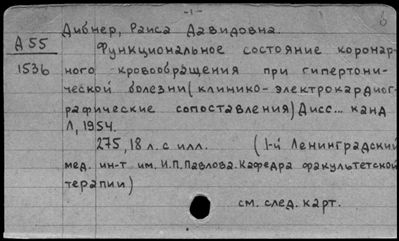 -1-
б
Дибнер, Раиса Давидовна.
Д 55
1536
Функциональное состояние коронар-
ного кровообращения при гипертони-
ческой болезни (клинико-электрокардиог-
рафические сопоставления) Дисс... канд
Л, 1954.
275, 18 л. с илл. (1-й Ленинградский
мед. ин-т им. И.П.Павлова. Кафедра факультетской
терапии)
см. след. карт.